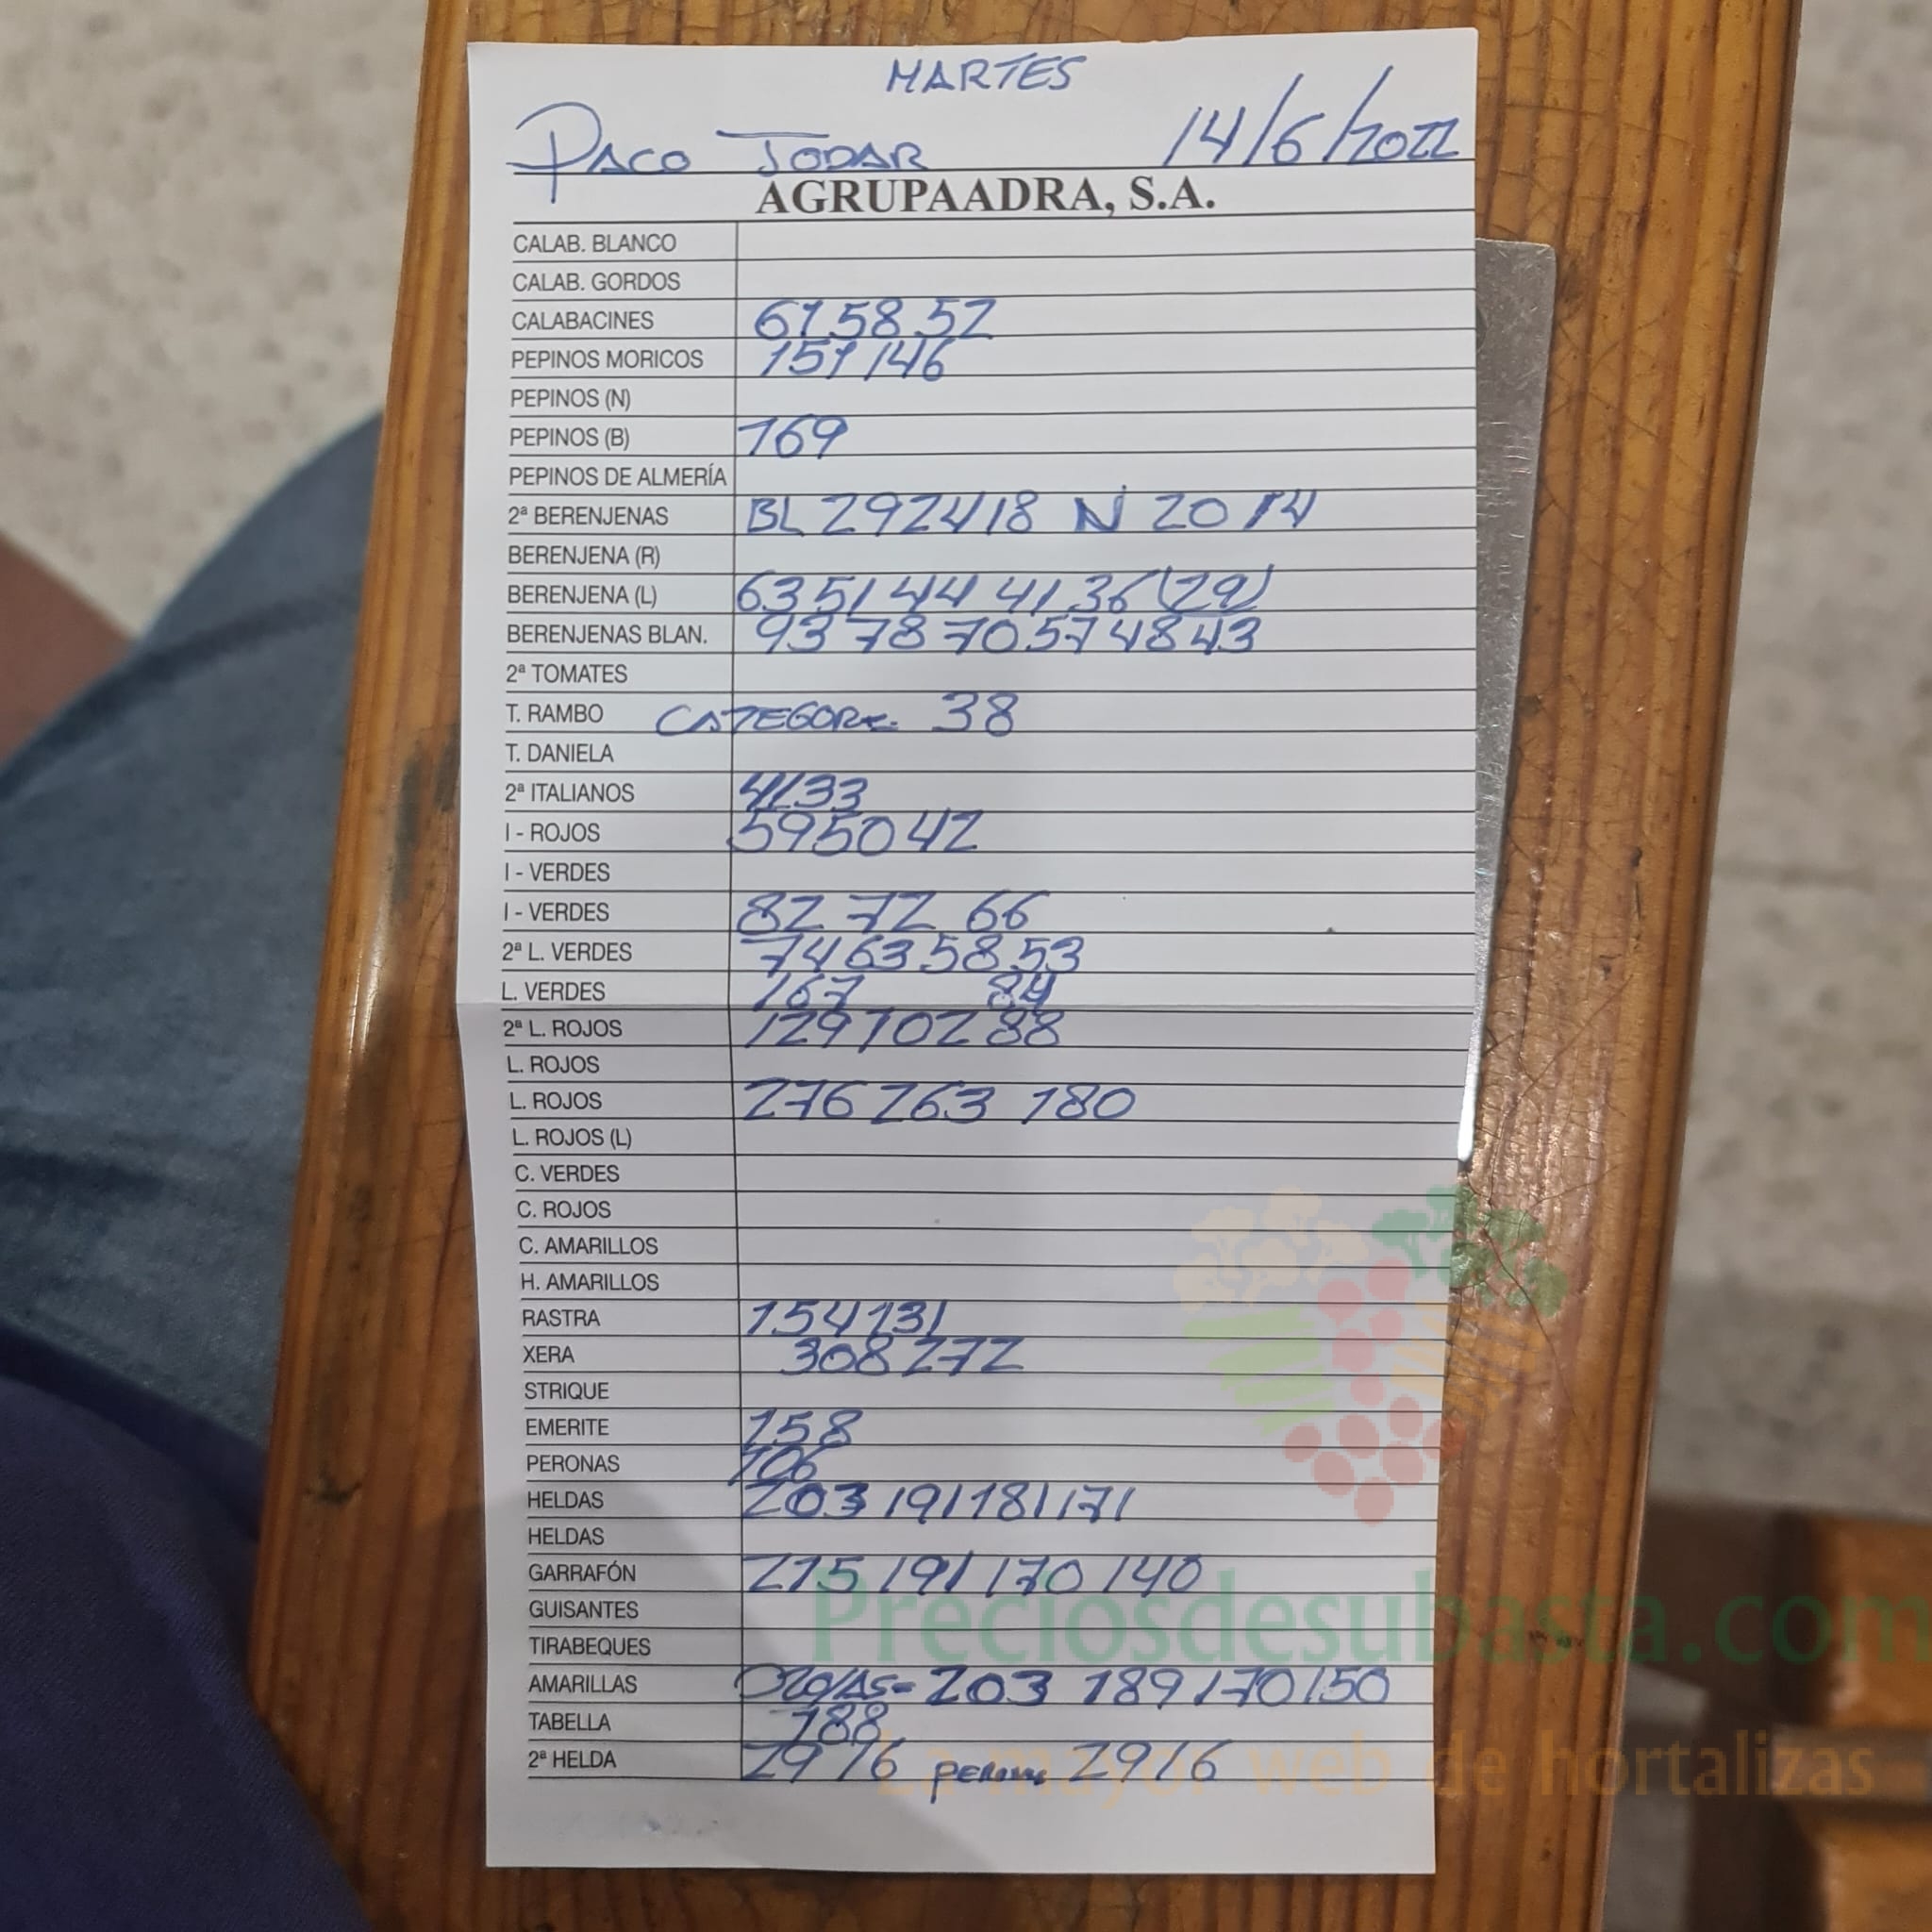 MARTES
PACO JODAR 14/6/2022
AGRUPAADRA, S.A.
CALAB. BLANCO
CALAB. GORDOS
CALABACINES 61 58 52
PEPINOS MORICOS 151 146
PEPINOS (N)
PEPINOS (B) 169
PEPINOS DE ALMERÍA
2ª BERENJENAS BL 29 24 18 N 20 14
BERENJENA (R)
BERENJENA (L) 63 51 44 41 36 (29)
BERENJENAS BLAN. 93 78 70 57 48 43
2ª TOMATES
T. RAMBO 38
T. DANIELA
2ª ITALIANOS 41 33
I - ROJOS 59 50 42
I - VERDES
I - VERDES 82 72 66
2ª L. VERDES 74 63 58 53
L. VERDES 167 84
2ª L. ROJOS 129 102 88
L. ROJOS
L. ROJOS 276 263 180
L. ROJOS (L)
C. VERDES
C. ROJOS
C. AMARILLOS
H. AMARILLOS
RASTRA 154 131
XERA 308 272
STRIQUE
EMERITE 158
PERONAS 106
HELDAS 203 191 181 171
HELDAS
GARRAFÓN 215 191 170 140
GUISANTES
TIRABEQUES
AMARILLAS 203 189 170 150
TABELLA 188
2ª HELDA 29 16 29 16
Preciosdesubasta.com
La mayor web de hortalizas